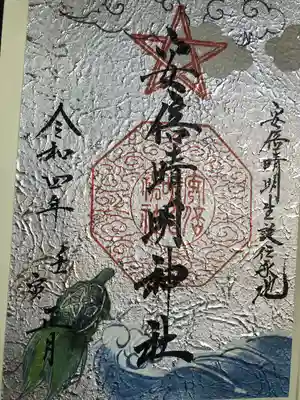 安倍晴明生誕伝承地
安倍晴明神社
令和四年
壬寅
正月